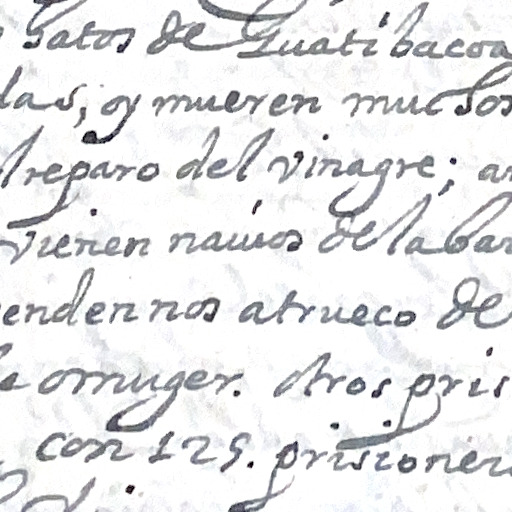 gatos de Guatibacoa
las, oy mueren muchos
reparo del vinagre; an
vienen nauios de la bar
endennos atrueco de
le o muger. Otros pris
con 125. prisioner